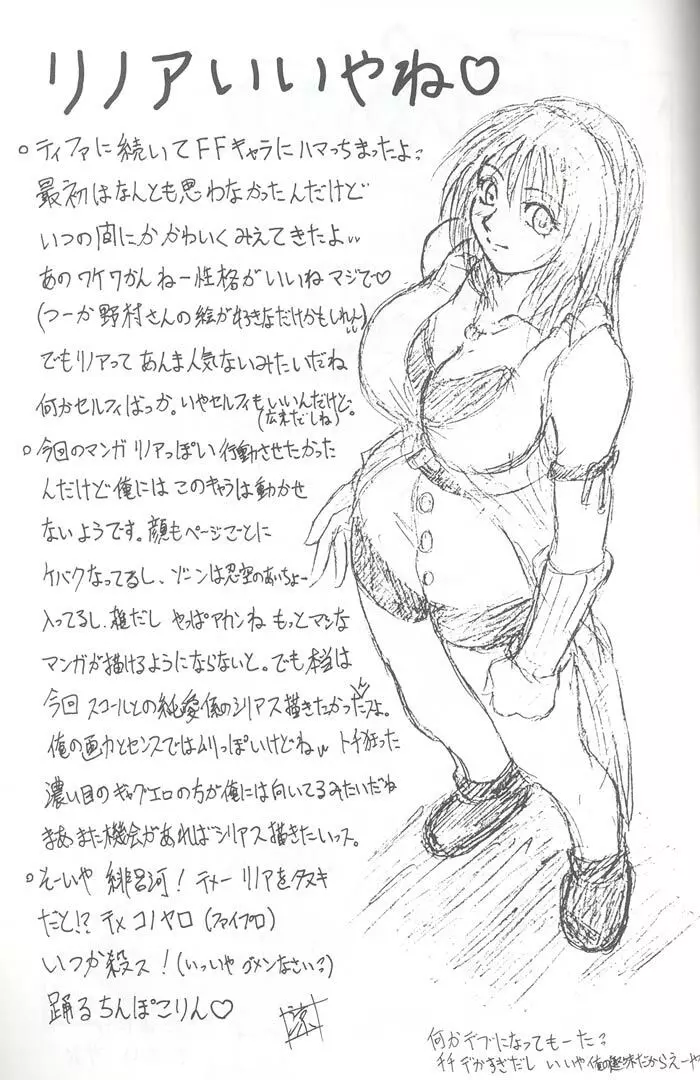 リノアいいやね♡
◦ティファに続いてFFキャラにハマっちまったよ?
最初はなんとも思わなかったんだけど
いつの間にかかわいくみえてきたよ
あのワケワかんねー性格がいいねマジで♡
(つーか野村さんの絵が好きなだけかもしれん)
でもリノアってあんま人気ないみたいだね
何かセルフィばっか。いやセルフィもいいんだけど。
(広末だしね)
◦今回のマンガ リノアっぽい行動させたかった
んだけど俺にはこのキャラは動かせ
ないようです。顔もページごとに
ケバくなってるし、ゾーンは忍空のあいちょー
入ってるし、雑だし やっぱアカンね もっとマシな
マンガが描けるようにならないと。でも本当は
今回 スコールとの純愛係のシリアス描きたかったスよ。
俺の画力とセンスではムリっぽいけどね トチ狂った
濃い目のギャグエロの方が俺には向いてるみたいだね
まあまた機会があればシリアス描きたいっス。
◦えーいや 緋呂河! テメー リノアをタヌキ
だと!? テメ コノヤロ (ファイプロ)
いつか殺ス! (いっいや ゴメンなさい?)
踊るちんぽこりん♡
何かデブになってもーた?
チチデカすぎだし いいや 俺の趣味だからえーや